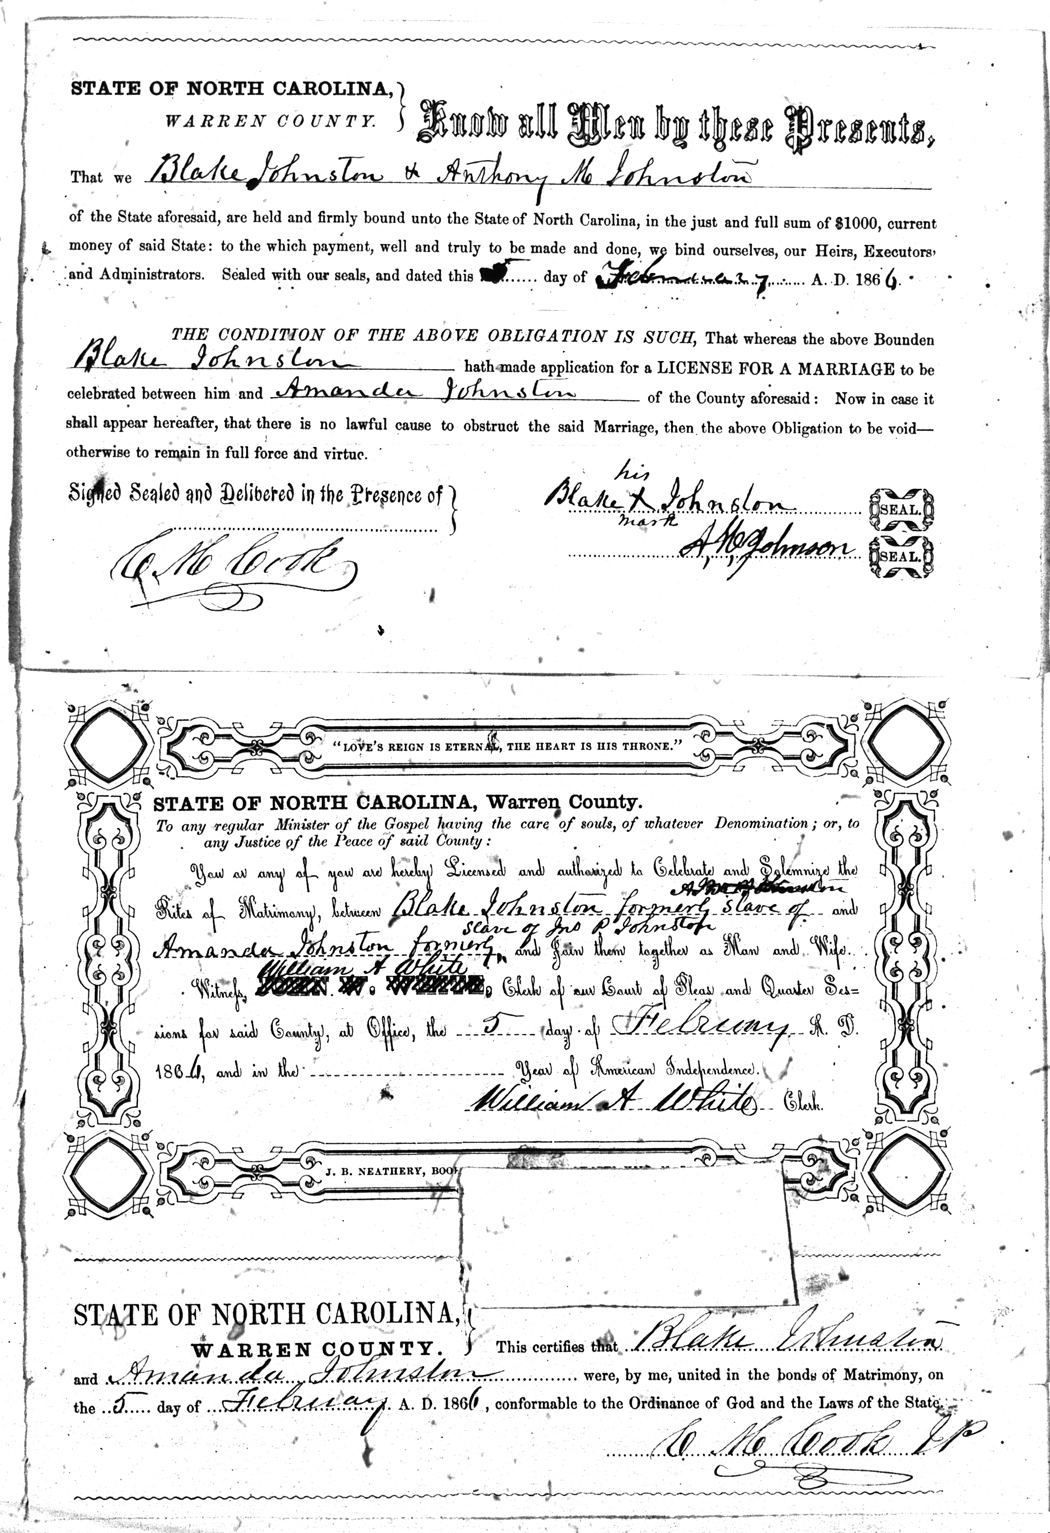 STATE OF NORTH CAROLINA,
WARREN COUNTY.
Know all Men by these Presents,
That we Blake Johnston & Anthony M Johnston
of the State aforesaid, are held and firmly bound unto the State of North Carolina, in the just and full sum of $1000, current
money of said State: to the which payment, well and truly to be made and done, we bind ourselves, our Heirs, Executors,
and Administrators. Sealed with our seals, and dated this day of February A. D. 1866.
THE CONDITION OF THE ABOVE OBLIGATION IS SUCH, That whereas the above Bounden
Blake Johnston hath made application for a LICENSE FOR A MARRIAGE to be
celebrated between him and Amanda Johnston of the County aforesaid: Now in case it
shall appear hereafter, that there is no lawful cause to obstruct the said Marriage, then the above Obligation to be void—
otherwise to remain in full force and virtue.
Signed Sealed and Delibered in the Presence of
his
Blake X Johnston SEAL.
mark
A, M, Johnson SEAL.
C M Cook
"LOVE'S REIGN IS ETERNAL, THE HEART IS HIS THRONE."
STATE OF NORTH CAROLINA, Warren County.
To any regular Minister of the Gospel having the care of souls, of whatever Denomination; or, to
any Justice of the Peace of said County:
You or any of you are hereby Licensed and authorized to Celebrate and Solemnize the
Rites of Matrimony, between Blake Johnston formerly slave of and
slave of Jno P Johnston
Amanda Johnston formerly and Join them together as Man and Wife.
William A White
Witness, Clerk of our Court of Pleas and Quarter Ses=
sions for said County, at Office, the 5 day of February A. D.
1866, and in the Year of American Independence.
William A White Clerk.
J. B. NEATHERY,
STATE OF NORTH CAROLINA,
WARREN COUNTY.
This certifies that Blake Johnston
and Amanda Johnston were, by me, united in the bonds of Matrimony, on
the 5 day of February A. D. 1866, conformable to the Ordinance of God and the Laws of the State.
C M Cook JP